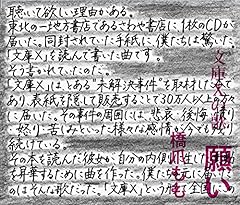 聴いて欲しい理由がある。
東北の一地方書店であるさわや書店に、1枚のCDが
届いた。同封されていた手紙に、僕たちは驚いた。
「文庫X」を読んで書いた曲です。
そう書かれていたのだ。
「文庫X」とは、ある“未解決事件”を取材した本であ
り、表紙を隠して販売することで30万人以上の方々
に届いた。その事件の周囲には、悲哀、後悔、憤り
怒り、苦しみといった様々な感情が、今でも
続けている。
その本を読んだ彼女が、自分の内側に
を昇華するために曲を作った。僕たちの元に届いた
のはそんな歌だった。「文庫X」という作品全体に
文庫Xの歌
願い
橋爪もも